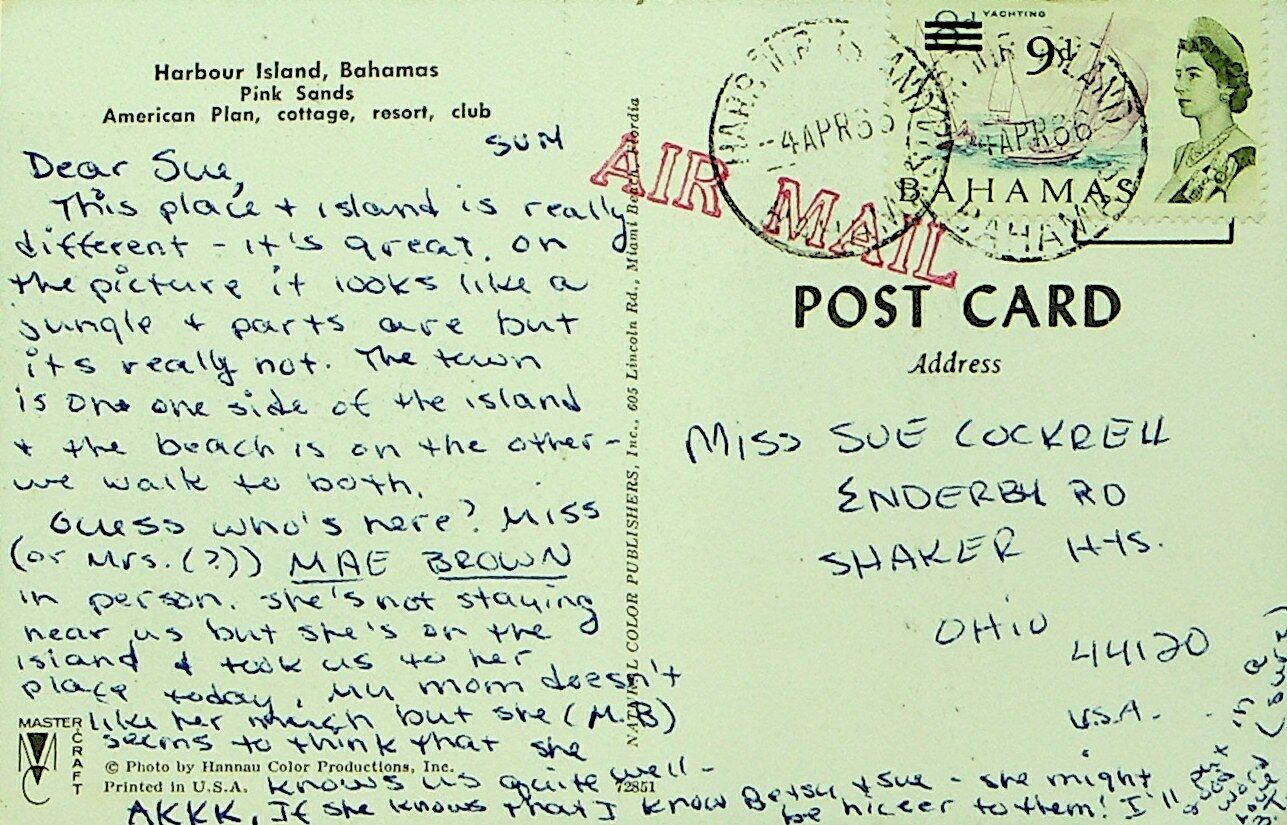 Harbour Island, Bahamas
Pink Sands
American Plan, cottage, resort, club
SUN
Dear Sue,
This place + island is really
different - it's great. on
the picture it looks like a
jungle + parts are but
it's really not. The town
is on one side of the island
+ the beach is on the other -
we walk to both.
Guess who's here? Miss
(or Mrs. (?)) MAE BROWN
in person. She's not staying
near us but she's on the
island & took us to her
place today. My mom doesn't
like her much but she (M.B)
seems to think that she
knows us quite well -
AKKK. If she knows that I know Betsy + Sue - she might
be niceer to them! I'll put
in a
good
word
MASTER
CRAFT
© Photo by Hannau Color Productions, Inc.
Printed in U.S.A.
72851
NATURAL COLOR PUBLISHERS, Inc., 605 Lincoln Rd., Miami Beach, Flordia
AIR MAIL
4 APR 66
4 APR 66
YACHTING
9d
BAHAMAS
POST CARD
Address
MISS SUE COCKRELL
ENDERBY RD
SHAKER HTS.
OHIO
44120
U.S.A.